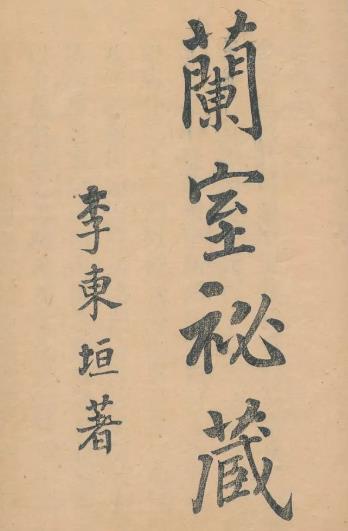 蘭室祕蔵
李東垣著